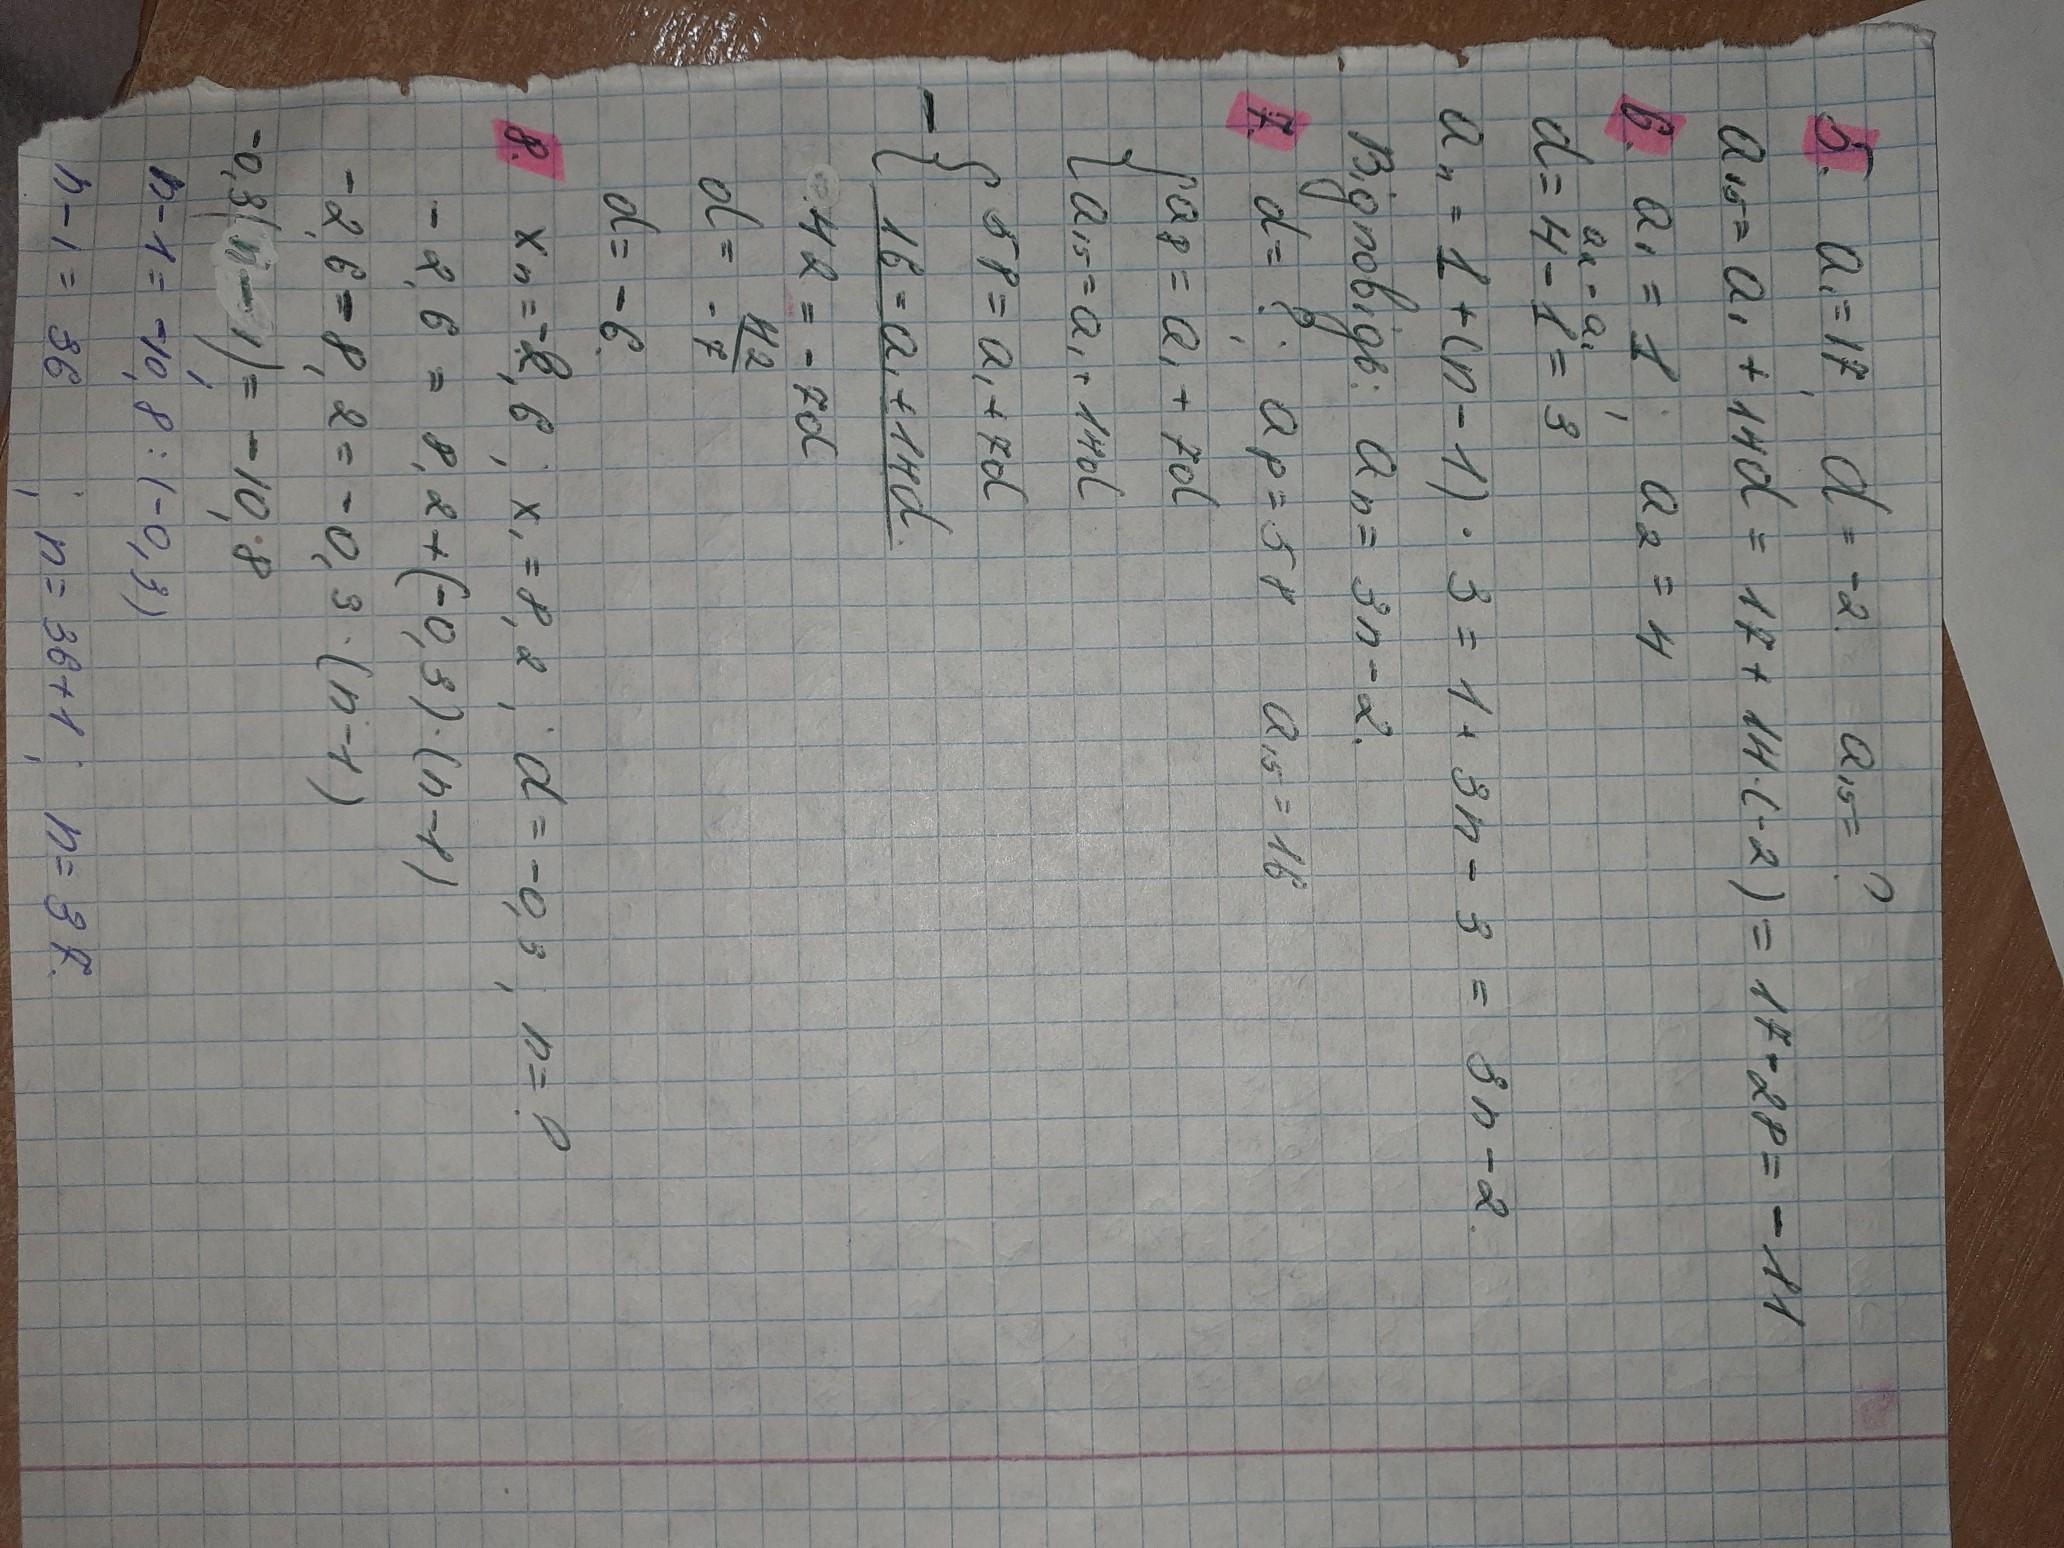 5. a₁ = 17, d = -2. a₁₅ = ?
a₁₅ = a₁ + 14d = 17 + 14·(-2) = 17 - 28 = -11
6. a₁ = 1; a₂ = 4
a₂ - a₁
d = 4 - 1 = 3
aₙ = 1 + (n - 1) · 3 = 1 + 3n - 3 = 3n - 2.
Відповідь: aₙ = 3n - 2.
7. d = ?; a₈ = 58 a₁₅ = 16
{ a₈ = a₁ + 7d
{ a₁₅ = a₁ + 14d
- { 58 = a₁ + 7d
{ 16 = a₁ + 14d.
42 = -7d
d = 42/-7
d = -6.
8. xₙ = -2,6; x₁ = 8,2; d = -0,3; n = ?
-2,6 = 8,2 + (-0,3)·(n - 1)
-2,6 - 8,2 = -0,3 · (n - 1)
-0,3(n - 1) = -10,8
n - 1 = -10,8 : (-0,3)
n - 1 = 36; n = 36 + 1; n = 37.